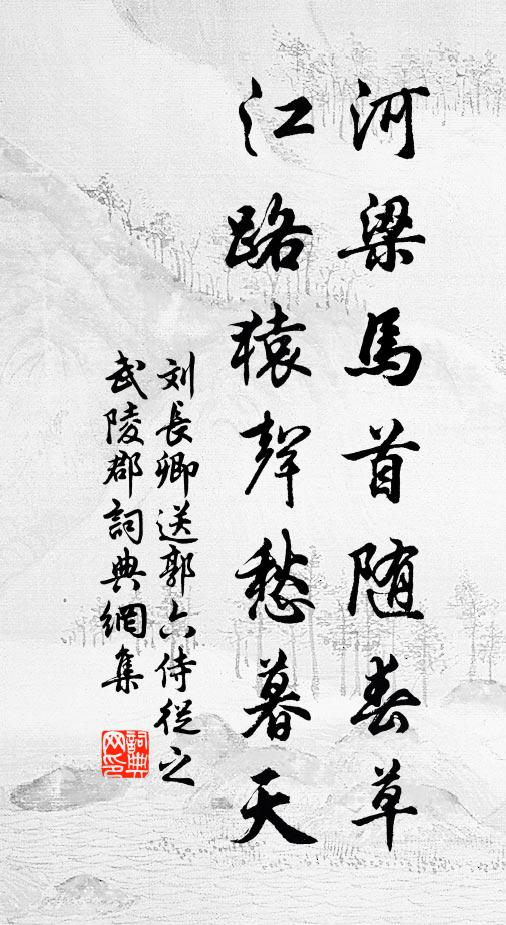 河梁馬首随春草
江路猿聲愁暮天
刘長卿送郭六侍従之
武陵郡詞典網集
詞典
网印